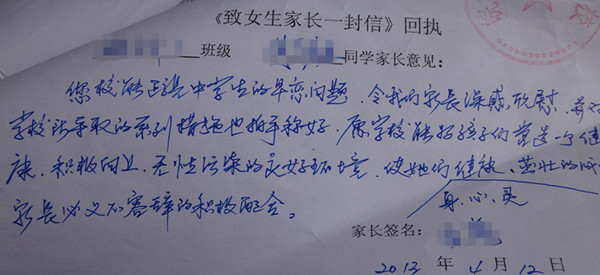 《致女生家长一封信》回执
班级 同学家长意见：
您校能正视中学生的早恋问题，令我们家长深感欣慰，并对
学校所采取的系列措施也拍手称好，愿学校能给孩子们营造一个健
康、积极向上、无性污染的良好环境，使她们健康、茁壮的成
身、心、灵
家长必义不容辞的积极配合。
家长签名：
2013 年 4 月 12 日